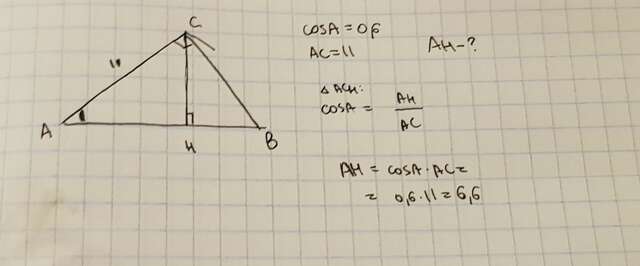 C
11
A
H
B
cosA = 0,6
AC = 11
AH - ?
△ ACH:
cosA = AH
AC
AH = cosA · AC =
= 0,6 · 11 = 6,6